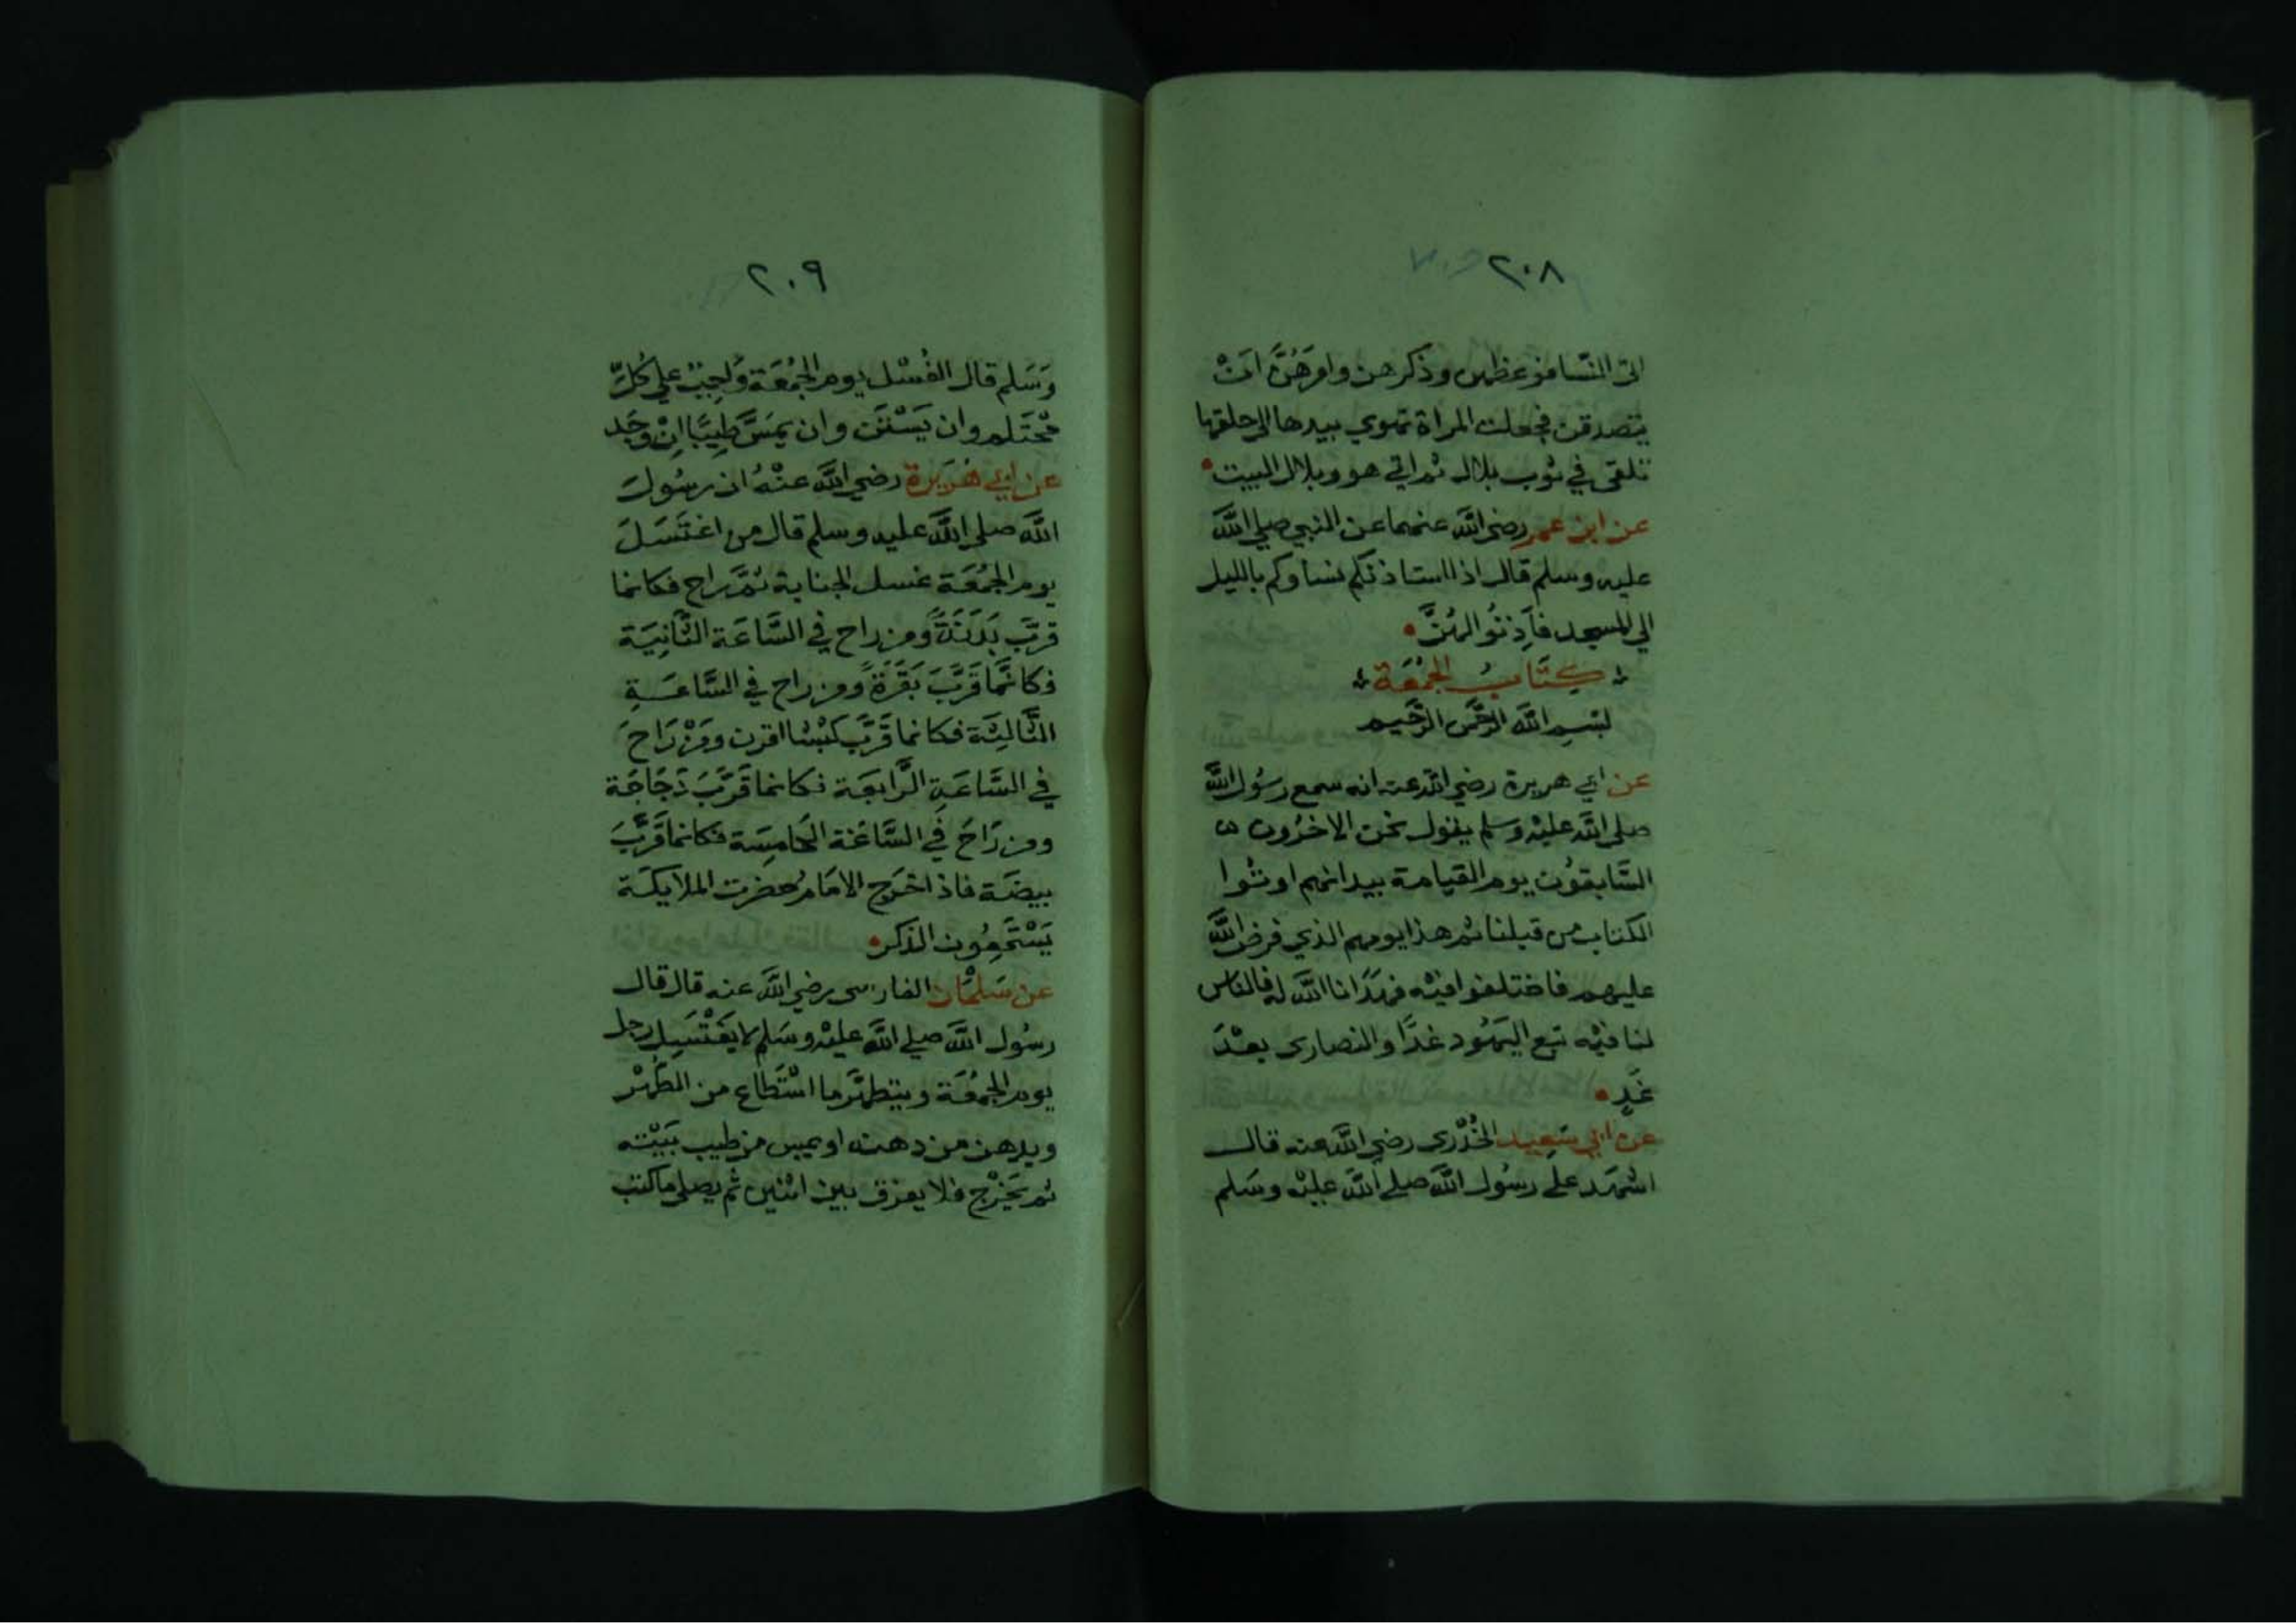 ٢٠٨
اتى النسا فوعظهن وذكرهن وامرهُنَّ انْ
يتصدقن فجعلت المراة تهوي بيدها الى حلقها
تلقى في ثوب بلال ثم اتى هو وبلال البيت
عن ابن عمر رضي الله عنهما عن النبي صلي الله
عليه وسلم قال اذا استاذنكم نساوكم بالليل
الي المسجد فأذِنُوا لهُنَّ
كِتَابُ الجُمُعَة
بِسْمِ اللَّه الرَّحمن الرَّحيم
عن ابي هريرة رضي الله عنه انه سمع رسُول الله
صلى الله عليْه وسلم يقول نحن الاخرُون
السَّابقُون يوم القيامة بيد انهم اوتوا
الكتاب من قبلنا ثم هذا يومهم الذي فرض الله
عليهم فاختلفوا فيْه فهَدَانا الله له فالناس
لنا فيْه تبع اليَهُود غدًا والنصارى بعْدَ
غَدٍ
عن ابي سَعِيد الخُدْرى رضي الله عنه قال
اشهَد على رسُول الله صلى الله عليْه وسَلم
٢٠٩
وَسَلم قال الغُسْل يوم الجُمُعَة وَاجِبٌ علي كُلِّ
مُحْتَلم وان يَسْتَن وان يمَسَّ طِيبًا اِنْ وَجَد
عن ابي هُرَيرة رضي الله عنْهُ ان رسُول
الله صلى الله عليه وسلم قال من اغتَسَلَ
يوم الجُمُعَة غسل الجنابة ثمَّ راح فكانما
قرَّبَ بَدَنَةً ومن راح في السَّاعَة الثَّانِيَة
فكانَّما قَرَّبَ بَقَرَةً ومن راح في السَّاعَةِ
الثَّالِثَة فكانما قَرَّبَ كبْشا اقرن ومَنْ رَاحَ
في السَّاعَةِ الرَّابعَة فكانما قَرَّبَ دَجَاجَة
ومن رَاحَ في السَّاعَة الخامِسَة فكانما قَرَّبَ
بيضَة فاذا خَرج الامَامُ حضرت الملايكَة
يَسْتَمِعُون الذكر
عن سَلْمَان الفارسى رضي الله عنه قال قال
رسُول الله صلي الله عليْه وسَلم لا يَغْتَسِل رجل
يوم الجُمُعَة ويتطهَّر ما اسْتَطاع من الطُهْر
ويدهن من دهنه او يمس من طيب بَيْته
ثم يَخْرُج فلا يفرق بين اثنين ثم يصلى ما كتب